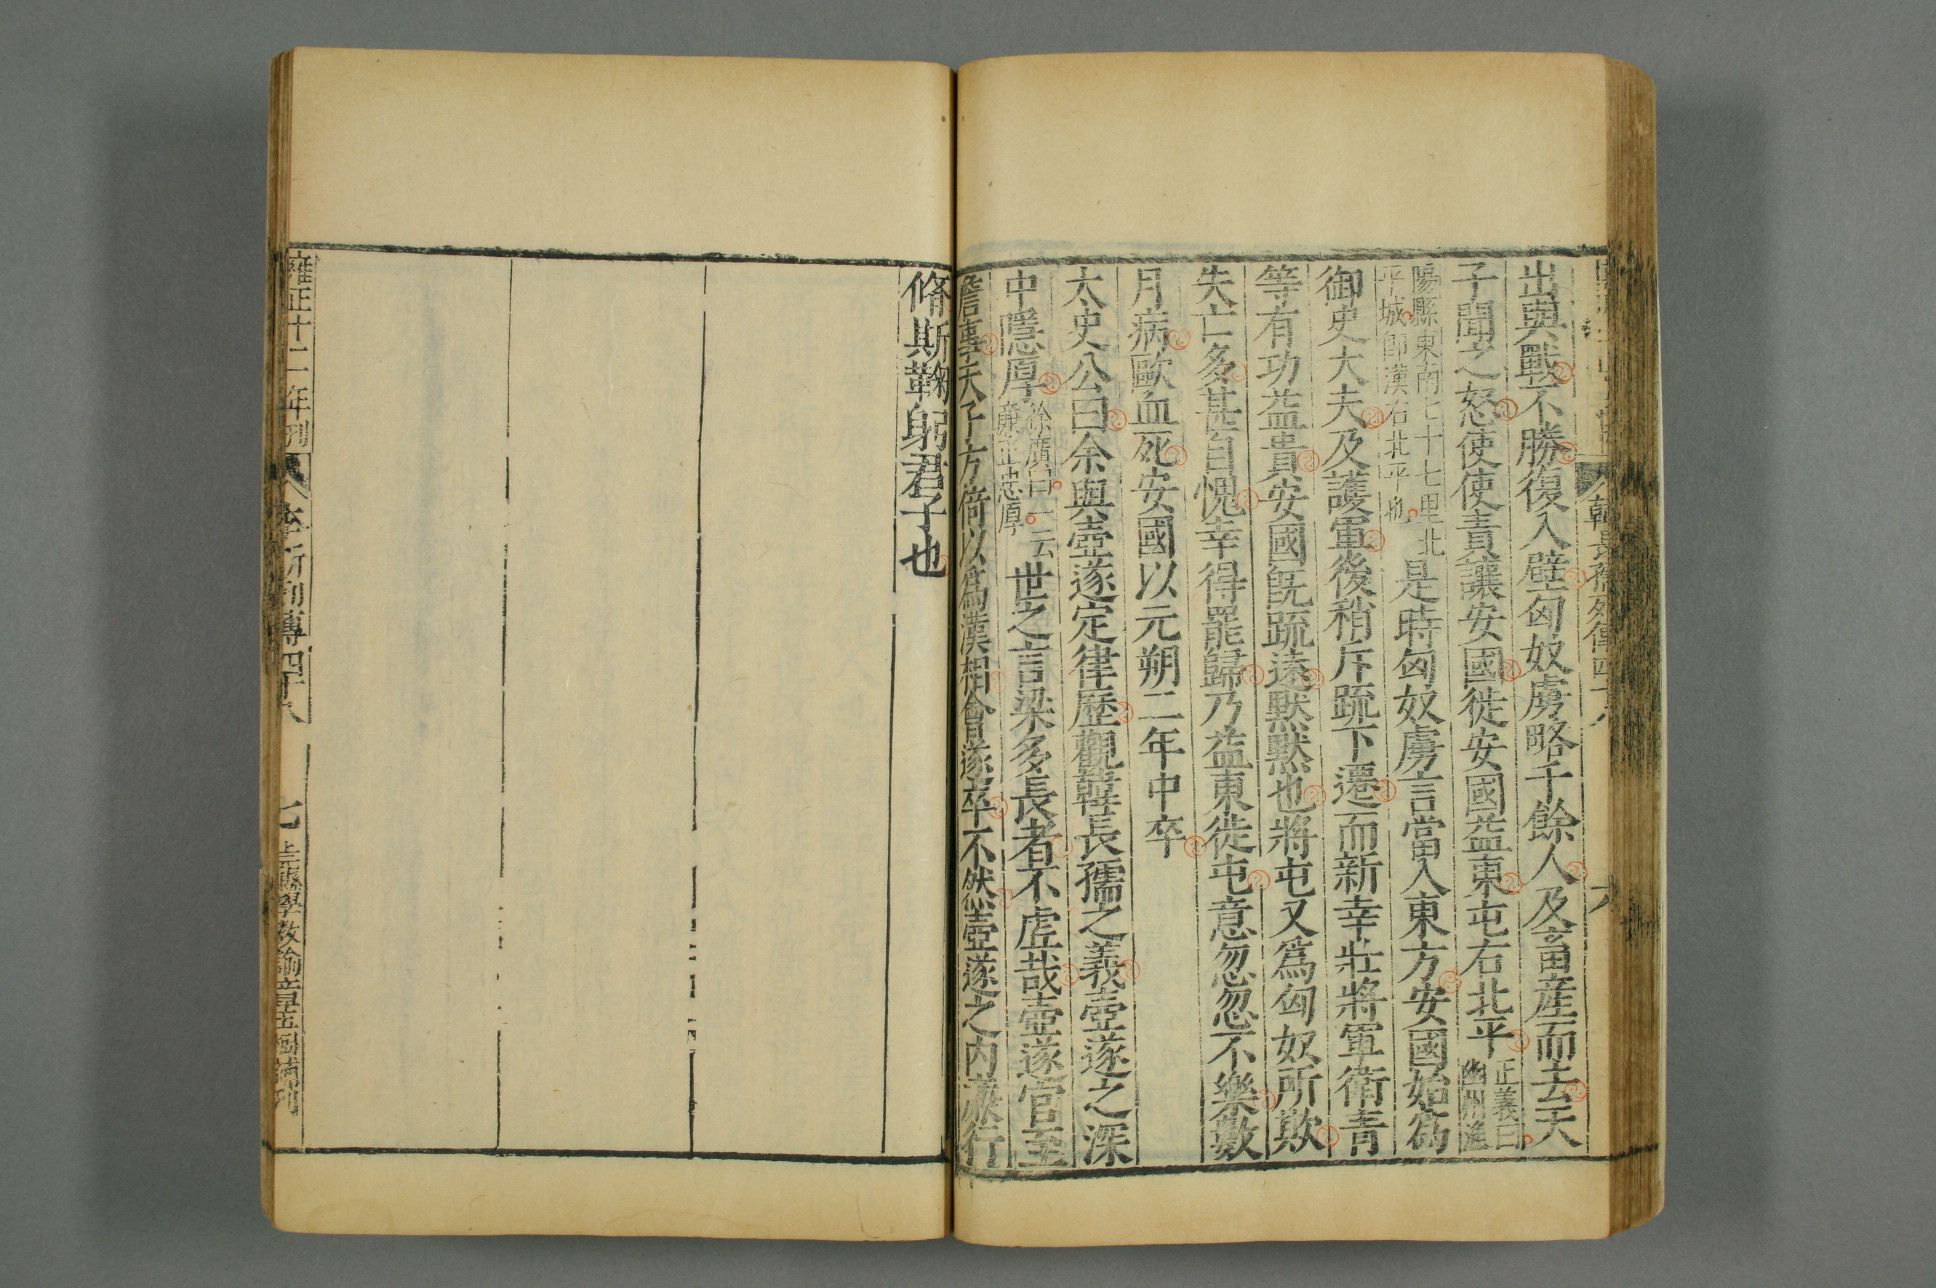 韓長孺列傳四十八
六
出與戰不勝復入壁匈奴虜略千餘人及畜產而去天
子聞之怒使使責讓安國徙安國益東屯右北平正義曰幽州漁
陽縣東南七十七里北平城卽漢右北平也是時匈奴虜言當入東方安國始爲
御史大夫及護軍後稍斥疏下遷而新幸壯將軍衛青
等有功益貴安國旣疏遠默默也將屯又爲匈奴所欺
失亡多甚自愧幸得罷歸乃益東徙屯意忽忽不樂數
月病歐血死安國以元朔二年中卒
太史公曰余與壺遂定律歷觀韓長孺之義壺遂之深
中隱厚徐廣曰一云廉正忠厚世之言梁多長者不虛哉壺遂官至
詹事天子方倚以爲漢相會遂卒不然壺遂之內廉行
脩斯鞠躬君子也
雍正十二年刊
列傳四十八
七
學教諭